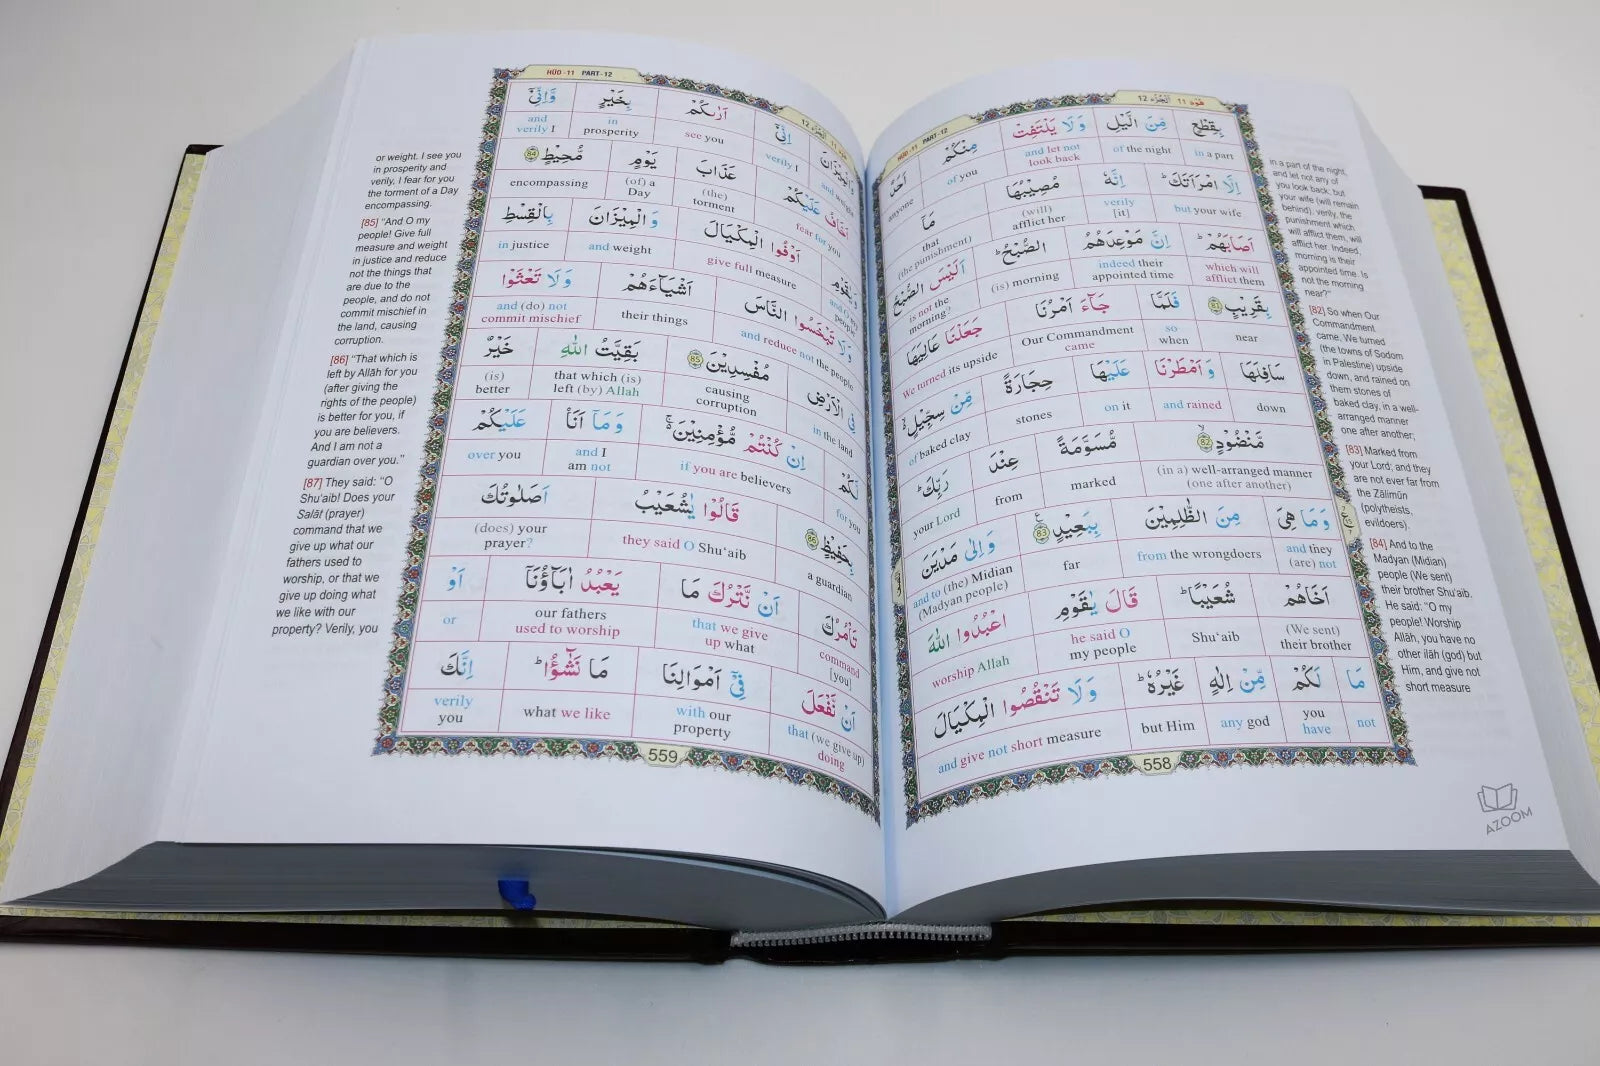 HŪD -11 PART -12
هُوْد 11 اَلْجُزْء 12
بِقِطْعٍ مِّنَ الَّيْلِ وَلَا يَلْتَفِتْ مِنْكُمْ اَحَدٌ
in a part of the night and let not look back of you anyone
اِلَّا امْرَاَتَكَ ؕ اِنَّهٗ مُصِيْبُهَا مَآ
but your wife verily [it] (will) afflict her that (the punishment)
اَصَابَهُمْ ؕ اِنَّ مَوْعِدَهُمُ الصُّبْحُ ؕ اَلَيْسَ الصُّبْحُ
which will afflict them indeed their appointed time (is) morning is not the morning?
بِقَرِيْبٍ ﴿81﴾ فَلَمَّا جَآءَ اَمْرُنَا جَعَلْنَا عَالِيَهَا
near so when Our Commandment came We turned its upside
سَافِلَهَا وَاَمْطَرْنَا عَلَيْهَا حِجَارَةً مِّنْ سِجِّيْلٍ
down and rained on it stones of baked clay
مَّنْضُوْدٍ ﴿82﴾ مُّسَوَّمَةً عِنْدَ رَبِّكَ ؕ
(in a) well-arranged manner (one after another) marked from your Lord
وَمَا هِيَ مِنَ الظّٰلِمِيْنَ بِبَعِيْدٍ ﴿83﴾ وَاِلٰى مَدْيَنَ
and they (are) not from the wrongdoers far and to (the) Midian (Madyan people)
اَخَاهُمْ شُعَيْبًا ؕ قَالَ يٰقَوْمِ اعْبُدُوا اللّٰهَ
(We sent) their brother Shu‘aib he said O my people worship Allah
مَا لَكُمْ مِّنْ اِلٰهٍ غَيْرُهٗ ؕ وَلَا تَنْقُصُوا الْمِكْيَالَ
not you have any god but Him and give not short measure
558
in a part of the night,
and let not any of
you look back, but
your wife (will remain
behind), verily, the
punishment which
will afflict them, will
afflict her. Indeed,
morning is their
appointed time. Is
not the morning
near?"
[82] So when Our
Commandment
came, We turned
(the towns of Sodom
in Palestine) upside
down, and rained on
them stones of
baked clay, in a well-
arranged manner
one after another;
[83] Marked from
your Lord; and they
are not ever far from
the Zālimūn
(polytheists,
evildoers).
[84] And to the
Madyan (Midian)
people (We sent)
their brother Shu'aib.
He said: "O my
people! Worship
Allāh, you have no
other ilāh (god) but
Him, and give not
short measure
HŪD -11 PART -12
هُوْد 11 اَلْجُزْء 12
وَالْمِيْزَانَ اِنِّيْٓ اَرٰىكُمْ بِخَيْرٍ وَّاِنِّيْٓ
and weight verily I see you in prosperity and verily I
اَخَافُ عَلَيْكُمْ عَذَابَ يَوْمٍ مُّحِيْطٍ ﴿84﴾
fear for you (the) torment (of) a Day encompassing
وَيٰقَوْمِ اَوْفُوا الْمِكْيَالَ وَالْمِيْزَانَ بِالْقِسْطِ
and O my people give full measure and weight in justice
وَلَا تَبْخَسُوا النَّاسَ اَشْيَآءَهُمْ وَلَا تَعْثَوْا
and reduce not the people their things and (do) not commit mischief
فِى الْاَرْضِ مُفْسِدِيْنَ ﴿85﴾ بَقِيَّتُ اللّٰهِ خَيْرٌ
in the land causing corruption that which (is) left (by) Allah (is) better
لَّكُمْ اِنْ كُنْتُمْ مُّؤْمِنِيْنَ ۚ وَمَآ اَنَا۠ عَلَيْكُمْ
for you if you are believers and I am not over you
بِحَفِيْظٍ ﴿86﴾ قَالُوْا يٰشُعَيْبُ اَصَلٰوتُكَ
a guardian they said O Shu‘aib (does) your prayer?
تَاْمُرُكَ اَنْ نَّتْرُكَ مَا يَعْبُدُ اٰبَآؤُنَآ اَوْ
command [you] that we give up what our fathers used to worship or
اَنْ نَّفْعَلَ فِيْٓ اَمْوَالِنَا مَا نَشٰٓؤُا ؕ اِنَّكَ
that (we give up) doing with our property what we like verily you
559
or weight. I see you
in prosperity and
verily, I fear for you
the torment of a Day
encompassing.
[85] "And O my
people! Give full
measure and weight
in justice and reduce
not the things that
are due to the
people, and do not
commit mischief in
the land, causing
corruption.
[86] "That which is
left by Allāh for you
(after giving the
rights of the people)
is better for you, if
you are believers.
And I am not a
guardian over you."
[87] They said: "O
Shu'aib! Does your
Salāt (prayer)
command that we
give up what our
fathers used to
worship, or that we
give up doing what
we like with our
property? Verily, you
AZOOM